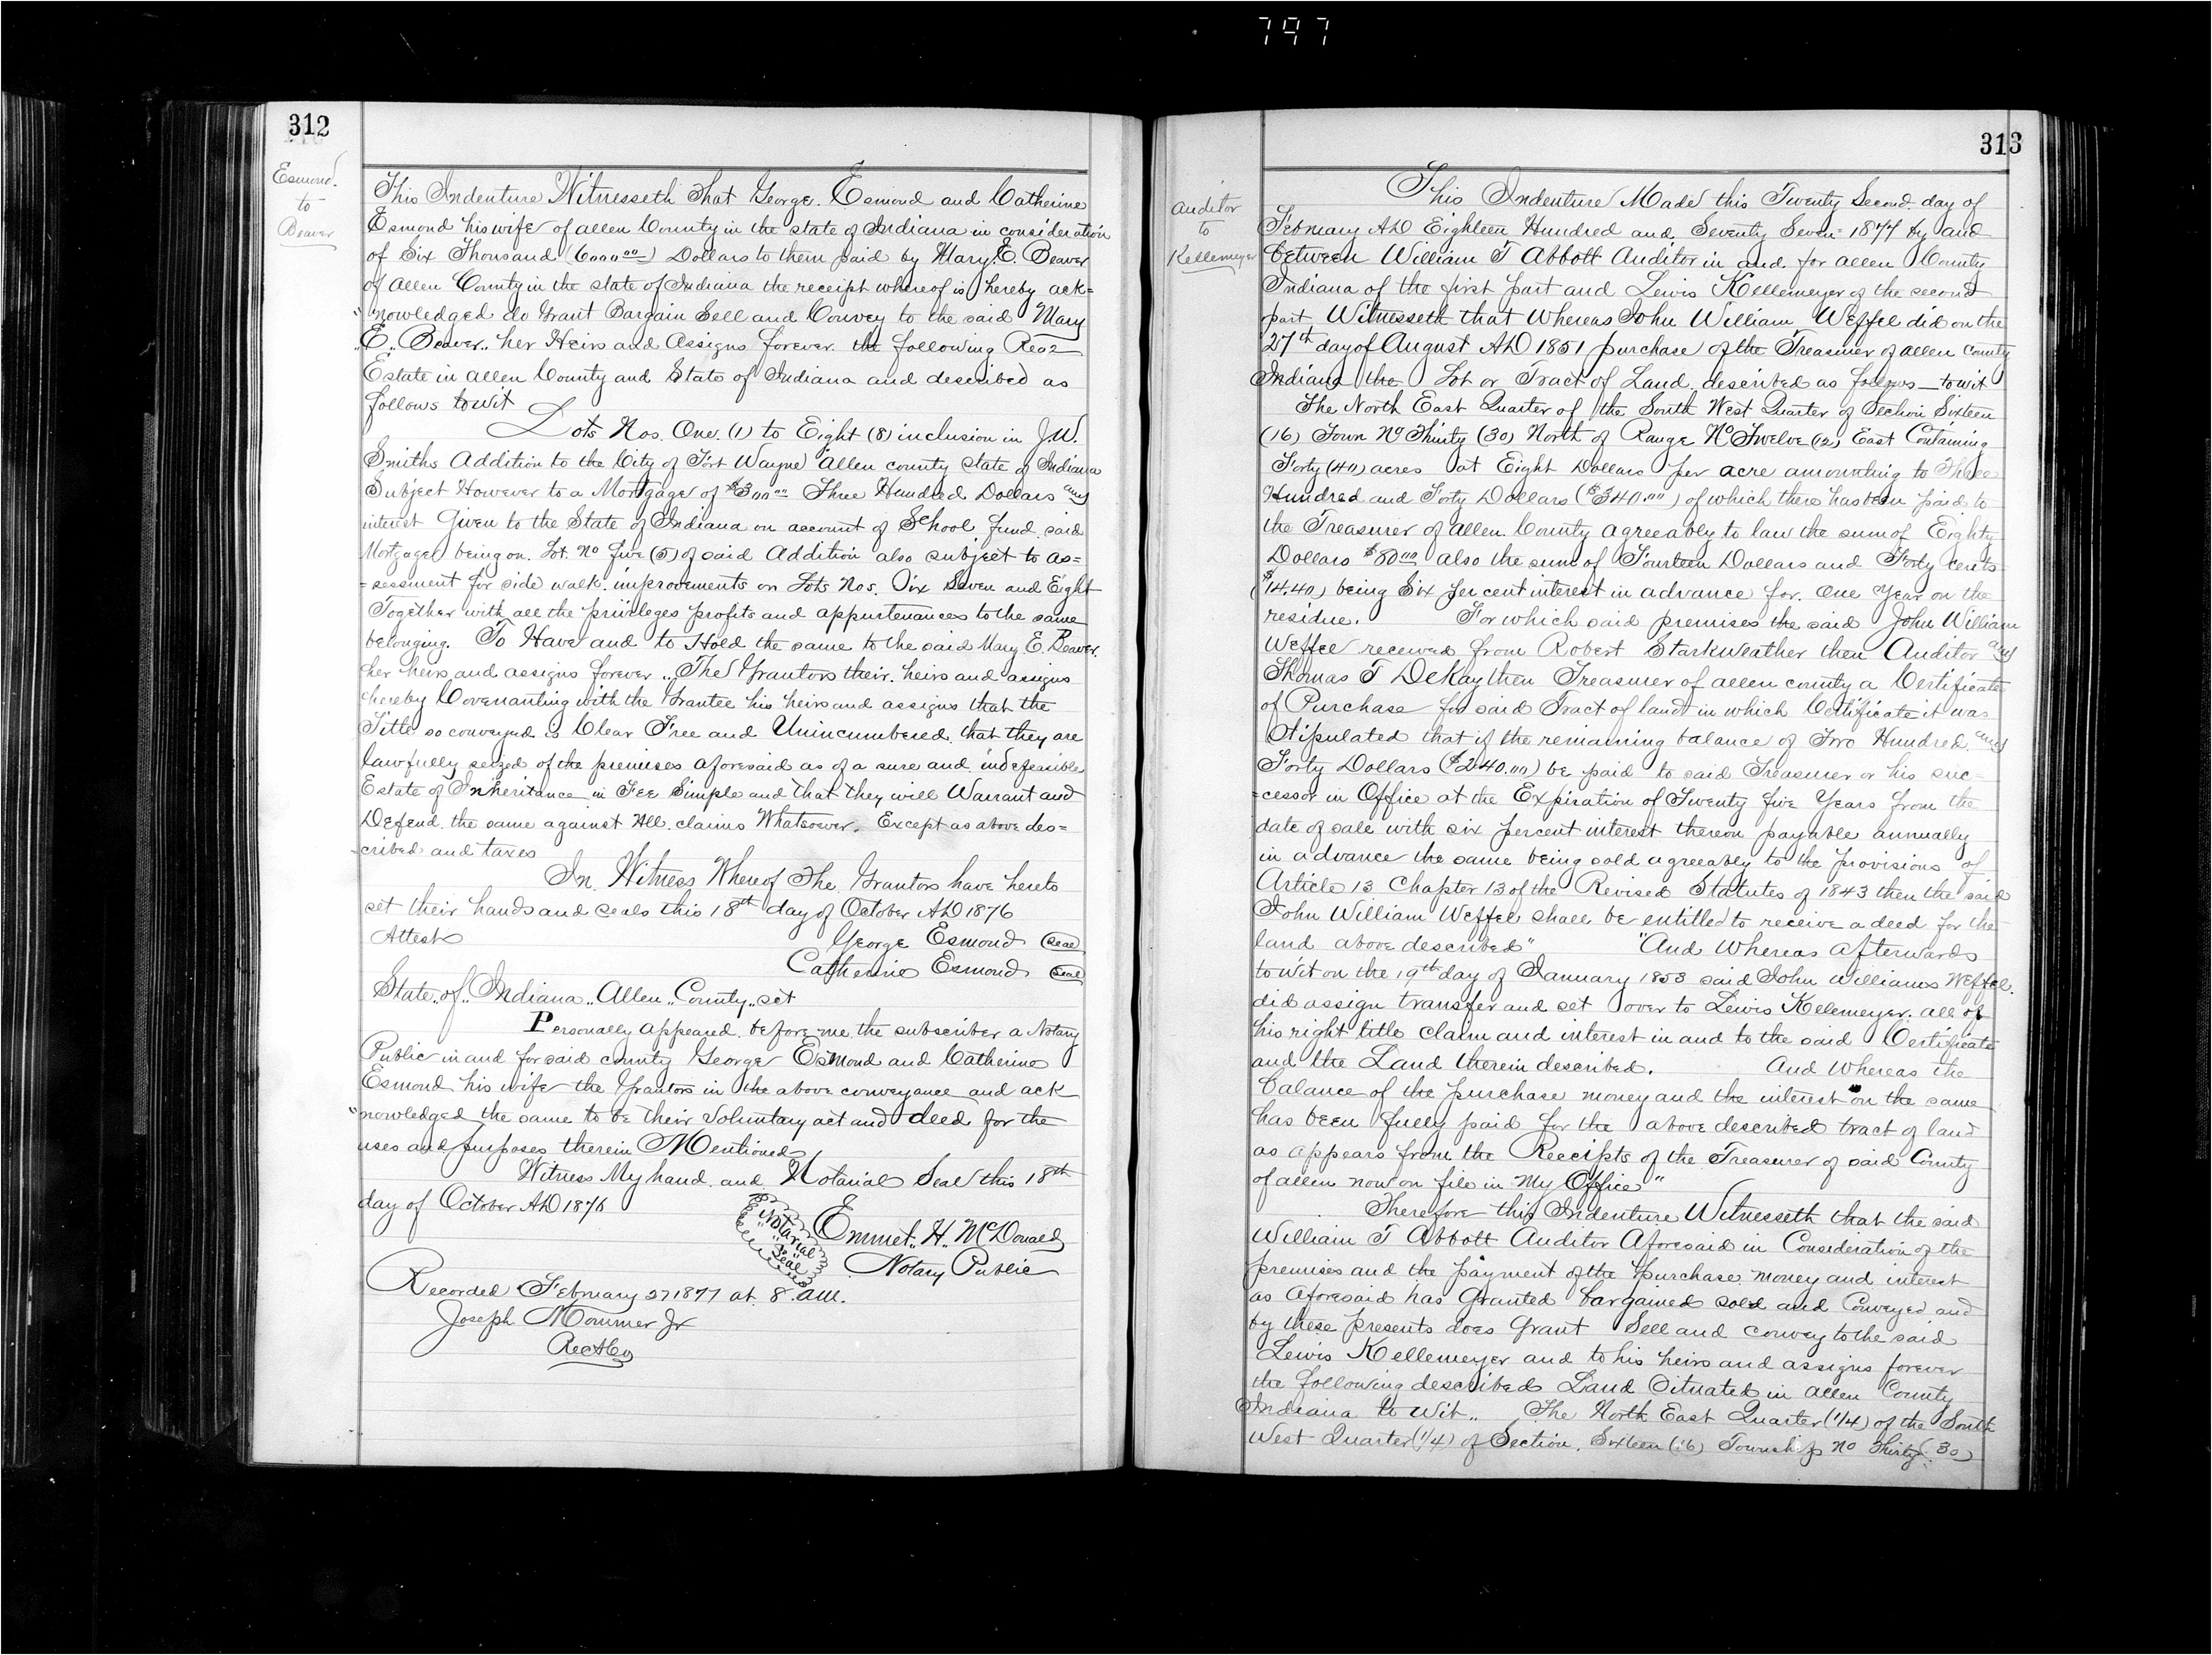 797
312
Esmond.
to
Beaver
This Indenture Witnesseth That George. Esmond and Catherine
Esmond his wife of allen County in the state of Indiana in consideration
of Six Thousand (6000.00) Dollars to them paid by Mary. E. Beaver
of allen County in the state of Indiana the receipt whereof is hereby ack=
"nowledged do Grant Bargain Sell and Convey to the said Mary
"E. Beaver" her Heirs and Assigns forever the following Real
Estate in allen County and State of Indiana and described as
follows towit
Lots Nos. One. (1) to Eight (8) inclusion in J.W.
Smiths Addition to the City of Fort Wayne allen county state of Indiana
Subject However to a Mortgage of $300.00 Three Hundred Dollars and
interest Given to the State of Indiana on account of School fund said
Mortgage being on. Lot. No five (5) of said Addition also subject to as=
=sessment for side walk. improvements on Lots Nos. Six Seven and Eight
Together with all the privileges profits and appurtenances to the same
belonging. To Have and to Hold the same to the said Mary E. Beaver.
her heirs and assigns forever. The Grantors their. heirs and assigns
hereby Covenanting with the Grantee his heirs and assigns that the
Title so conveyed is Clear Free and Unincumbered that they are
lawfully seized of the premises aforesaid as of a sure and indefeasible
Estate of Inheritance in Fee Simple and that they will Warrant and
Defend the same against All. claims Whatsoever. Except as above des=
=cribed and taxes
In Witness Whereof The Grantors have hereto
set their hands and seals this 18th day of October AD 1876
Attest George Esmond (seal)
Catherine Esmond (seal)
State "of" Indiana "Allen" County "set
Personally appeared before me the subscriber a Notary
Public in and for said county George Esmond and Catherine
Esmond his wife the Grantors in the above conveyance and ack
"nowledged the same to be their Voluntary act and deed for the
uses and purposes therein Mentioned
Witness My hand and Notarial Seal this 18th
day of October AD 1876
Notarial
Seal
Emmet. H. McDonald
Notary Public
Recorded February 27 1877 at 8. am.
Joseph Mommer Jr
RecACo
313
Auditor
to
Kellemeyer
This Indenture Made this Twenty Second. day of
February AD Eighteen Hundred and Seventy Seven= 1877 by and
between William T Abbott Auditor in and for allen County
Indiana of the first part and Lewis Kellemeyer of the second
part Witnesseth that Whereas John William Weffel did on the
27th day of August AD 1851 purchase of the Treasurer of allen county
Indiana the Lot or Tract of Land described as follows—towit
The North East Quarter of the South West Quarter of Section Sixteen
(16) Town No Thirty (30) North of Range No Twelve (12) East Containing
Forty (40) acres at Eight Dollars per acre amounting to Three
Hundred and Forty Dollars ($340.00) of which there has been paid to
the Treasurer of allen County agreeably to law the sum of Eighty
Dollars $80.00 also the sum of Fourteen Dollars and Forty cents
($14.40) being Six per cent interest in advance for. One Year on the
residue. For which said premises the said John William
Weffel received from Robert Starkweather then Auditor and
Thomas T DeKay then Treasurer of allen county a Certificate
of Purchase for said Tract of land in which Certificate it was
Stipulated that if the remaining balance of Two Hundred and
Forty Dollars ($240.00) be paid to said Treasurer or his suc=
=cessor in Office at the Expiration of Twenty five Years from the
date of sale with six percent interest thereon payable annually
in advance the same being sold agreeably to the provisions of
Article 13 Chapter 13 of the Revised Statutes of 1843 then the said
John William Weffel shall be entitled to receive a deed for the
land above described" "And Whereas afterwards
towit on the 19th day of January 1853 said John Williams Weffel.
did assign transfer and set over to Lewis Kellemeyer. all of
his right title claim and interest in and to the said Certificate
and the Land therein described. And Whereas the
balance of the purchase money and the interest on the same
has been fully paid for the above described tract of land
as appears from the Receipts of the Treasurer of said County
of allen now on file in My Office"
Therefore this Indenture Witnesseth that the said
William T Abbott Auditor Aforesaid in Consideration of the
premises and the payment of the purchase money and interest
as Aforesaid has Granted bargained sold and Conveyed and
by these presents does Grant Sell and convey to the said
Lewis Kellemeyer and to his heirs and assigns forever
the following described Land Situated in allen County
Indiana to Wit" The North East Quarter (1/4) of the South
West Quarter (1/4) of Section Sixteen (16) Township No Thirty (30)